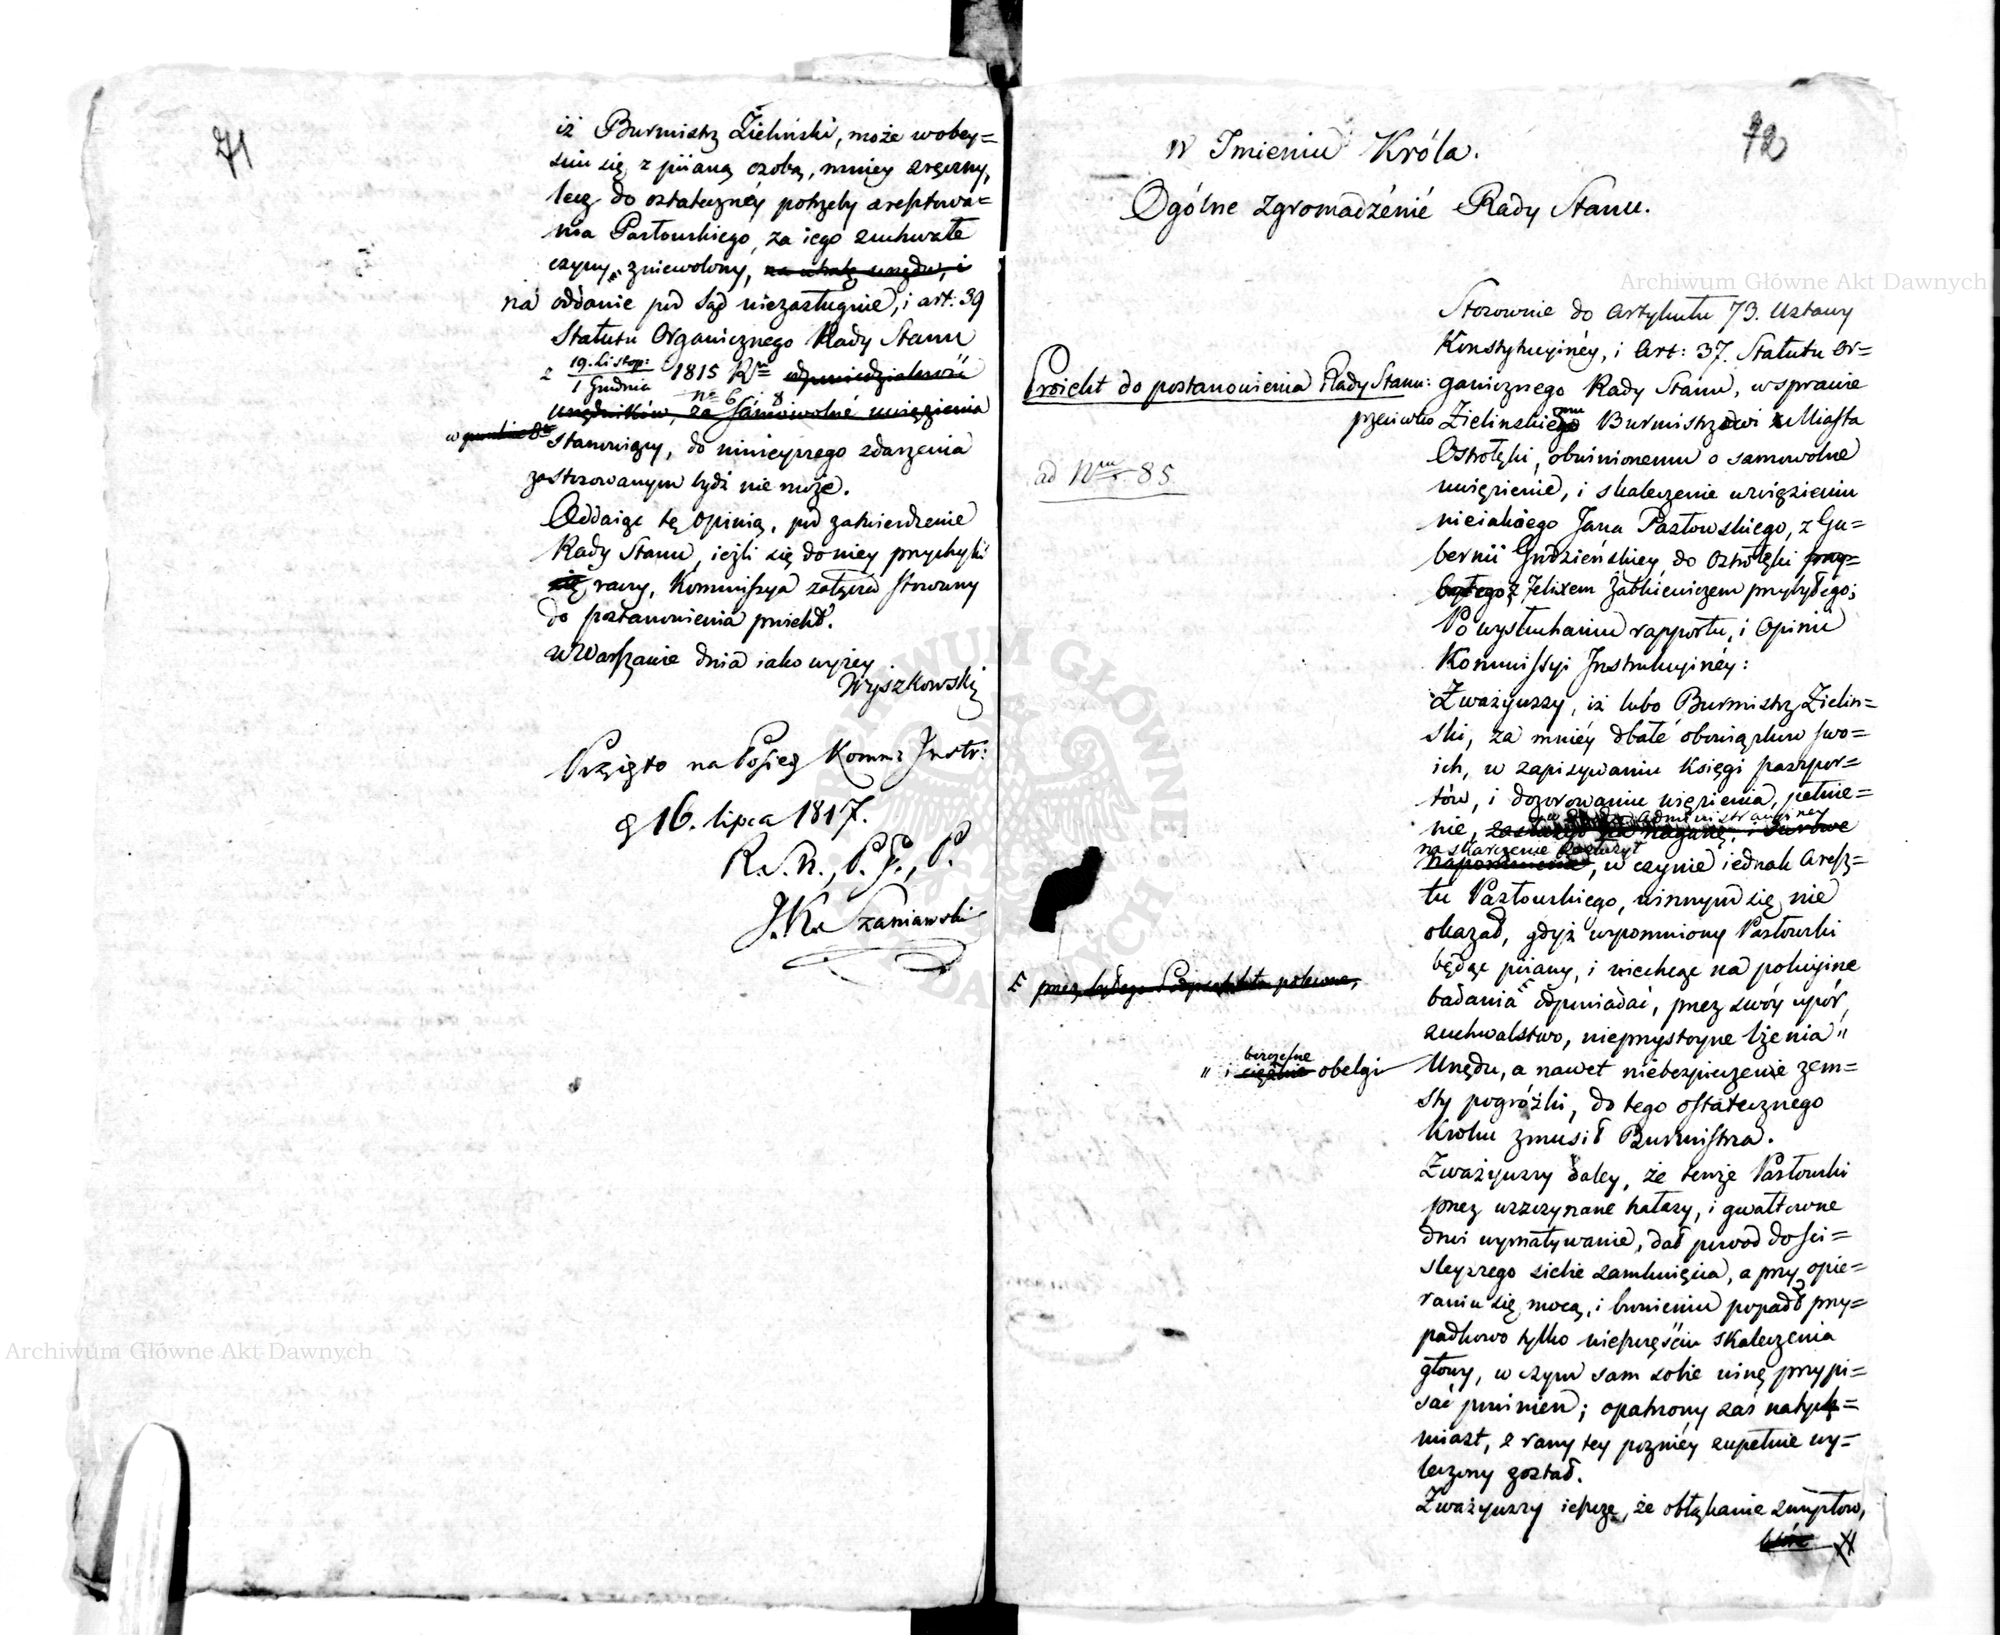 71
iż Burmistrz Zieliński, może w obey=
sciu się z piianą osobą, mniey zręczny,
lecz do ostateczney potrzeby aresztowa=
nia Pastowskiego, za iego zuchwałe
czyny, zniewolony, na utratę urzędu, i
na oddanie pod Sąd niezasługuie, i art: 39
Statutu Organicznego Rady Stanu
z 19. Listop: / 1 Grudnia 1815 R. odpowiedzialność
nro 6 i 8
urzędników, za samowolne uwięzienia
w punkcie 8
stanowiący, do ninieyszego zdarzenia
zastosowanym bydź nie może.
Oddaiąc tę Opinią, pod zatwierdzenie
Rady Stanu, ieżli się do niey przychylić
się raczy, Kommissya załącza stosowny
do postanowienia proiekt.
w Warszawie dnia iako wyżey
Wyszkowski
Przyięto na Posiedz Komm: Instr:
d 16. lipca 1817.
R. S. n., P. J., P.
J. K. Szaniawski
72
w Imieniu Króla.
Ogólne Zgromadzénié Rady Stanu.
Proiekt do postanowienia Rady Stanu:
ad Nrum 85
Stosownie do artykułu 73. Ustawy
Konstytucyinéy, i Art: 37. Statutu Or=
ganicznego Rady Stanu, w sprawie
przeciwko Zielinskiemu Burmistrzowi Miasta
Ostrołęki, obwinionemu o samowolne
uwięzienie, i skaleczenie w więzieniu
nieiakiego Jana Pastowskiego, z Gu=
bernii Grodzieńskiey do Ostrołęki przy=
byłego z Felixem Żabkiewiczem przybyłego;
Po wysłuchaniu rapportu, i Opinii
Kommissyi Instrukcyinéy:
Zważywszy, iż lubo Burmistrz Zielin=
ski, za mniéy dbałé obowiązków swo=
ich, w zapisywaniu Księgi paszpor=
tów, i dozorowaniu więzienia, pełnie=
nie, zasługuie na naganę, i surowe
drodze administracyinéy
na skarcenie zasłużył
napomnienie, w czynie iednak aresz=
tu Pastowskiego, winnym się nie
okazał, gdyż wspomniony Pastowski
będąc piiany, i niechcąc na policyine
badania odpowiadać, przez swóy upór,
przez byłego Podprefekta polecone,
zuchwalstwo, nieprzystoyne lżenia "
" i bezczelne obelgi
Urzędu, a nawet niebezpieczenie zem=
sty pogróżki, do tego ostatecznego
kroku zmusił Burmistrza.
Zważywszy daley, że tenże Pastowski
przez wszczynane hałasy, i gwałtowne
drzwi wyważywanie, dał powod do ści=
sleyszego siebie zamknięcia, a przy opie=
raniu się mocą, i bronieniu popadł przy=
padkowo tylko nieszczęściu skaleczenia
głowy, w czym sam sobie winę przypi=
sać powinien; opatrzony zaś natych=
miast, z rany tey pozniéy zupełnie wy=
leczony został.
Zważywszy ieszcze, że obłąkanie zmysłow,